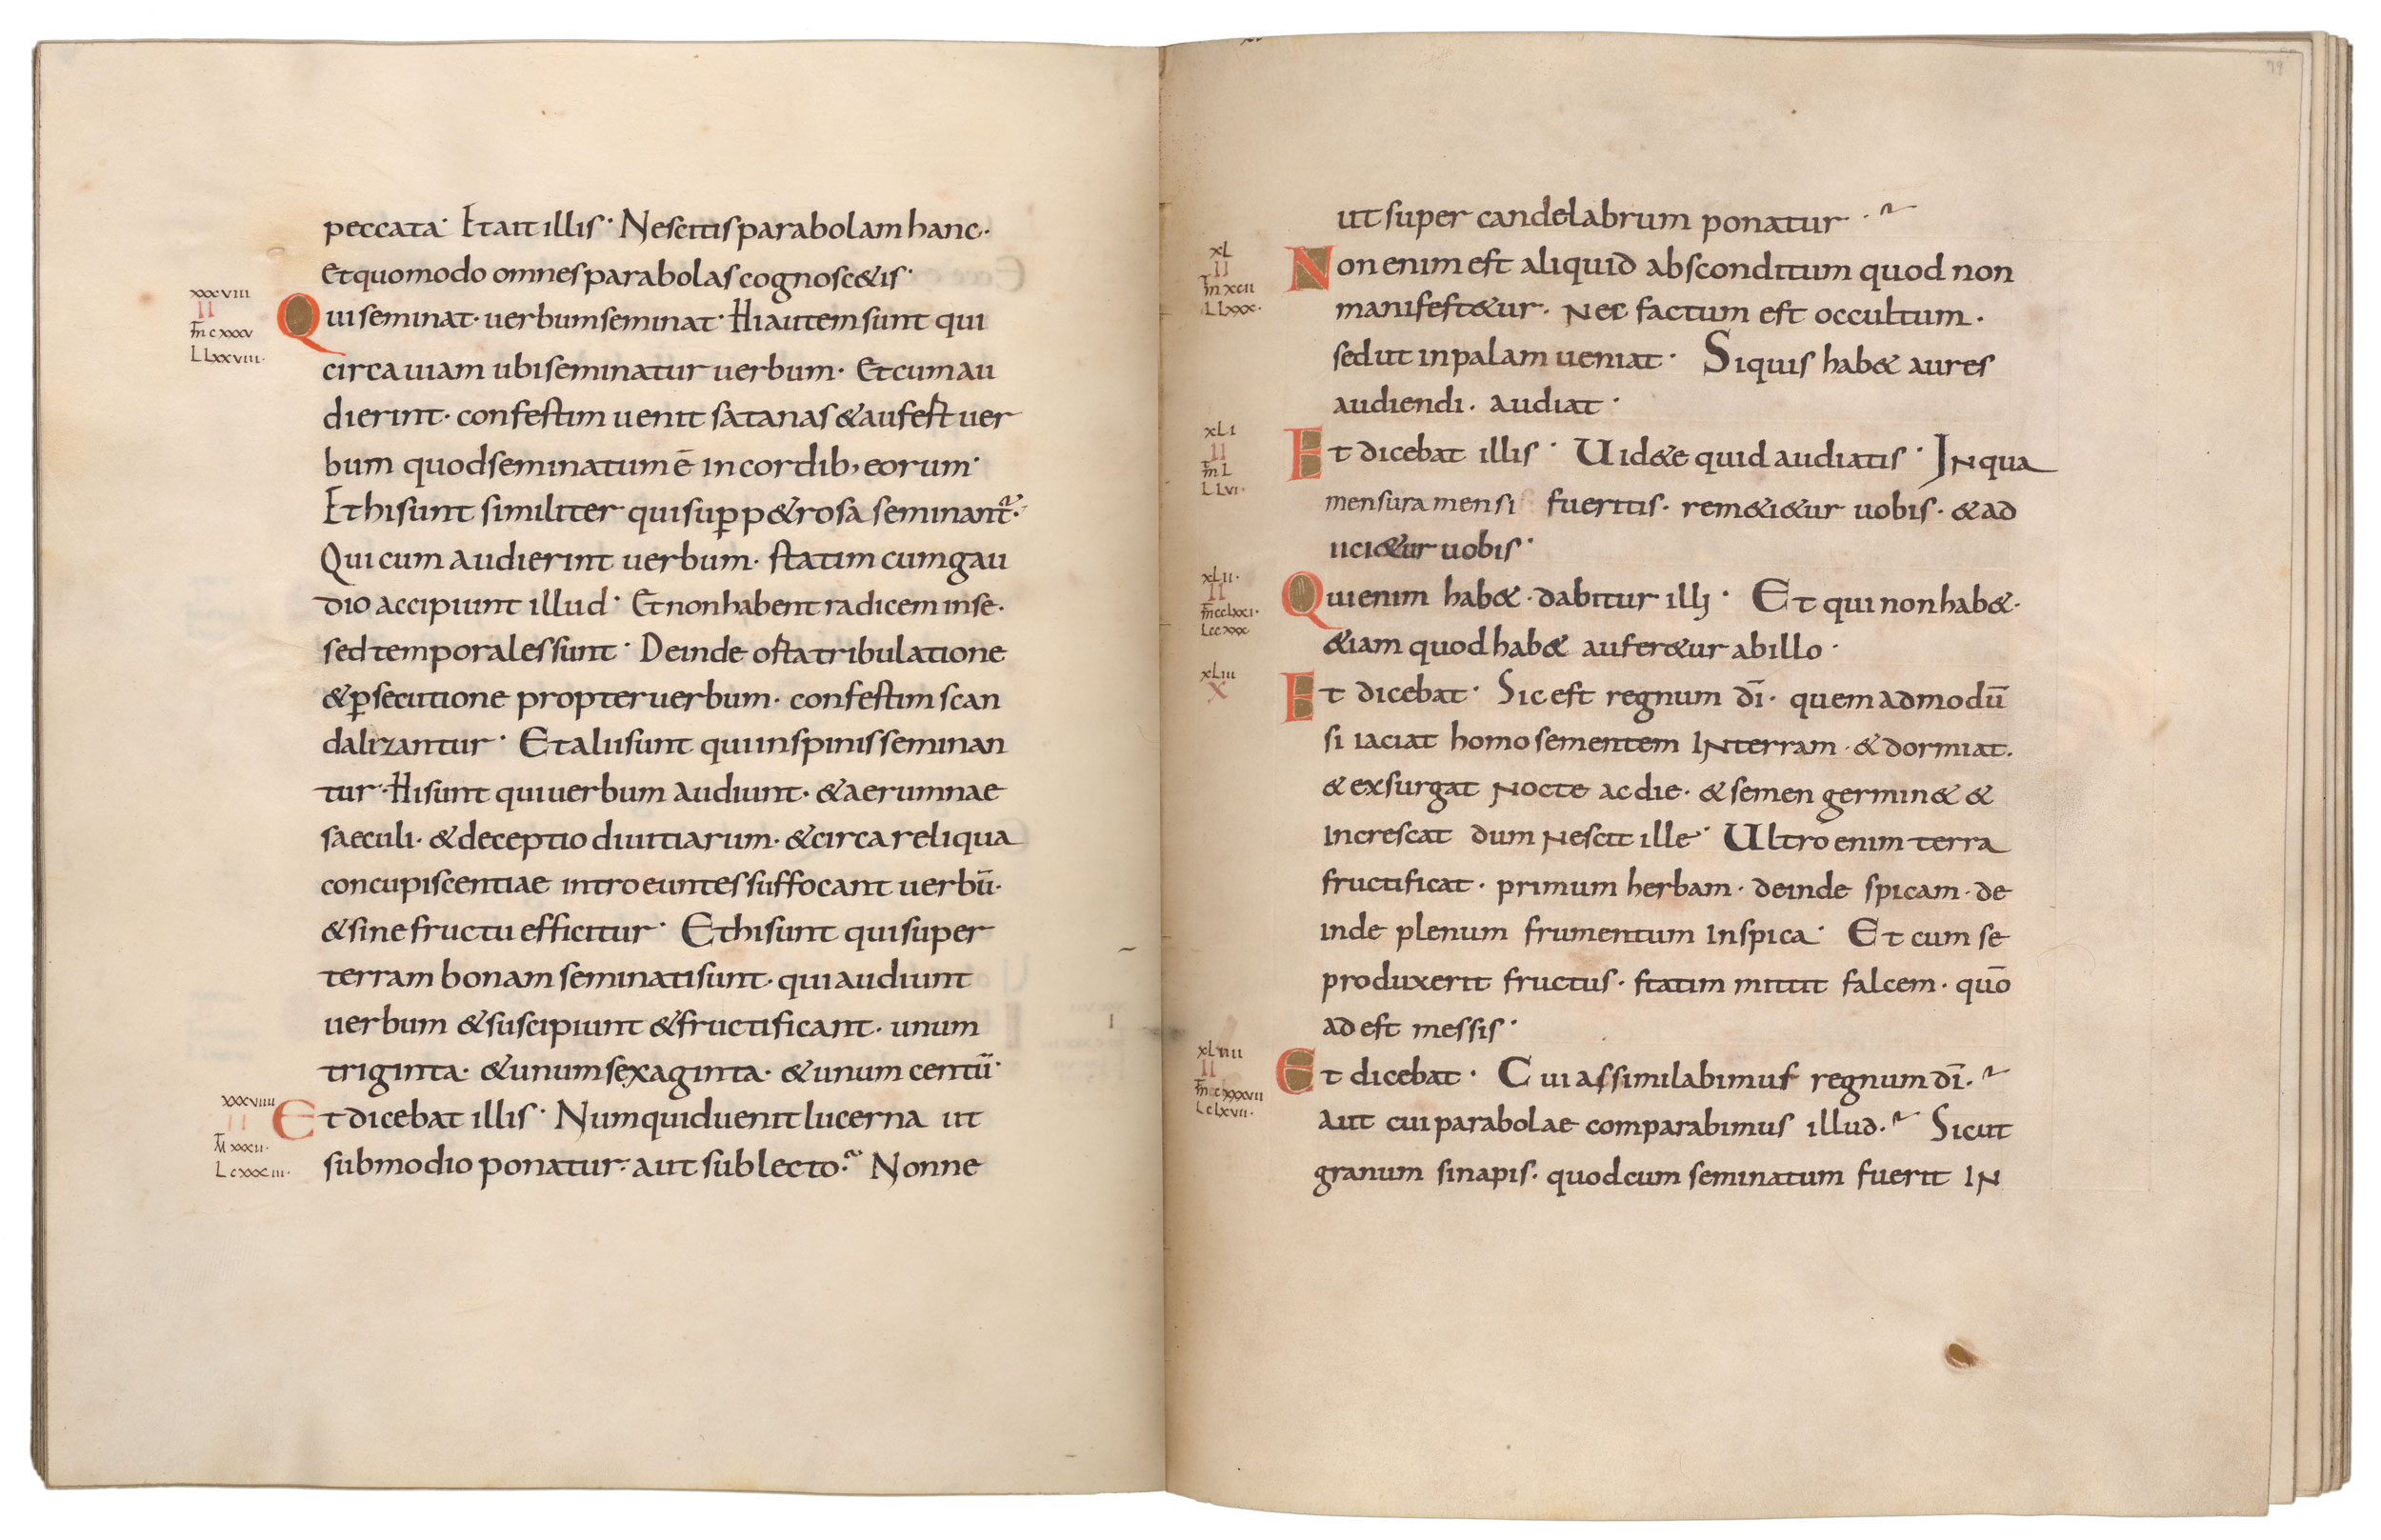 peccata· Et ait illis· Nescitis parabolam hanc·
Et quomodo omnes parabolas cognosc&is·
xxxviii
II
m̄ cxxxv
L Lxxviii·
Qui seminat· uerbum seminat· Hi autem sunt qui
circa uiam ubi seminatur uerbum· Et cum au
dierint· confestim uenit satanas & aufert uer
bum quod seminatum ē in cordib, eorum·
Et hi sunt similiter qui sup p&rosa seminant̄·
Qui cum audierint uerbum· statim cum gau
dio accipiunt illud· Et non habent radicem in se·
sed temporales sunt· Deinde orta tribulatione
& p̱secutione propter uerbum· confestim scan
dalizantur· Et alii sunt qui in spinis seminan
tur· Hi sunt qui uerbum audiunt· & aerumnae
saeculi· & deceptio diuitiarum· & circa reliqua
concupiscentiae introeuntes suffocant uerbū·
& sine fructu efficitur· Et hi sunt qui super
terram bonam seminati sunt· qui audiunt
uerbum & suscipiunt & fructificant· unum
triginta· & unum sexaginta· & unum centū·
xxxviiii
II
M̄ xxxii·
L cxxxiii·
Et dicebat illis· Numquid uenit lucerna ut
sub modio ponatur· aut sub lecto· Nonne
79
ut super candelabrum ponatur·
xL
II
m̄ xcii
L Lxxx·
Non enim est aliquid absconditum quod non
manifest&ur· Nec factum est occultum·
sed ut in palam ueniat· Si quis hab& aures
audiendi· audiat·
xLi
II
m̄ L
L Lvi·
Et dicebat illis· Uid&e quid audiatis· In qua
mensura mensi fueritis· rem&i&ur uobis· & ad
iici&ur uobis·
xLii·
II
m̄ cclxxi·
Lccxxx
Qui enim hab&· dabitur illi· Et qui non hab&·
&iam quod hab& aufer&ur ab illo·
xLiii
X
Et dicebat· Sic est regnum dī· quemadmodū
si iaciat homo sementem in terram· & dormiat·
& exsurgat nocte ac die· & semen germin& &
increscat dum nescit ille· Ultro enim terra
fructificat· primum herbam· deinde spicam· de
inde plenum frumentum in spica· Et cum se
produxerit fructus· statim mittit falcem· quō
adest messis·
xLiiii
II
m̄ cxxxvii
Lclxvii·
Et dicebat· Cui assimilabimus regnum dī·
aut cui parabolae comparabimus illud· Sicut
granum sinapis· quod cum seminatum fuerit in